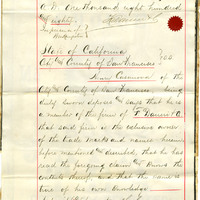 A.D. One thousand eight hundred
and eighty.
In presence of
State of California
City and County of San Francisco } SS
Henry Casanova of the
City and County of San Francisco being
duly sworn deposes and says that he is
a member of the firm of F. Daneri & Co
that said firm is the owner
of the trade mark and names herein
before mentioned and described, that he has
read the foregoing claim and knows the
contents thereof and that the same is
true of his own knowledge